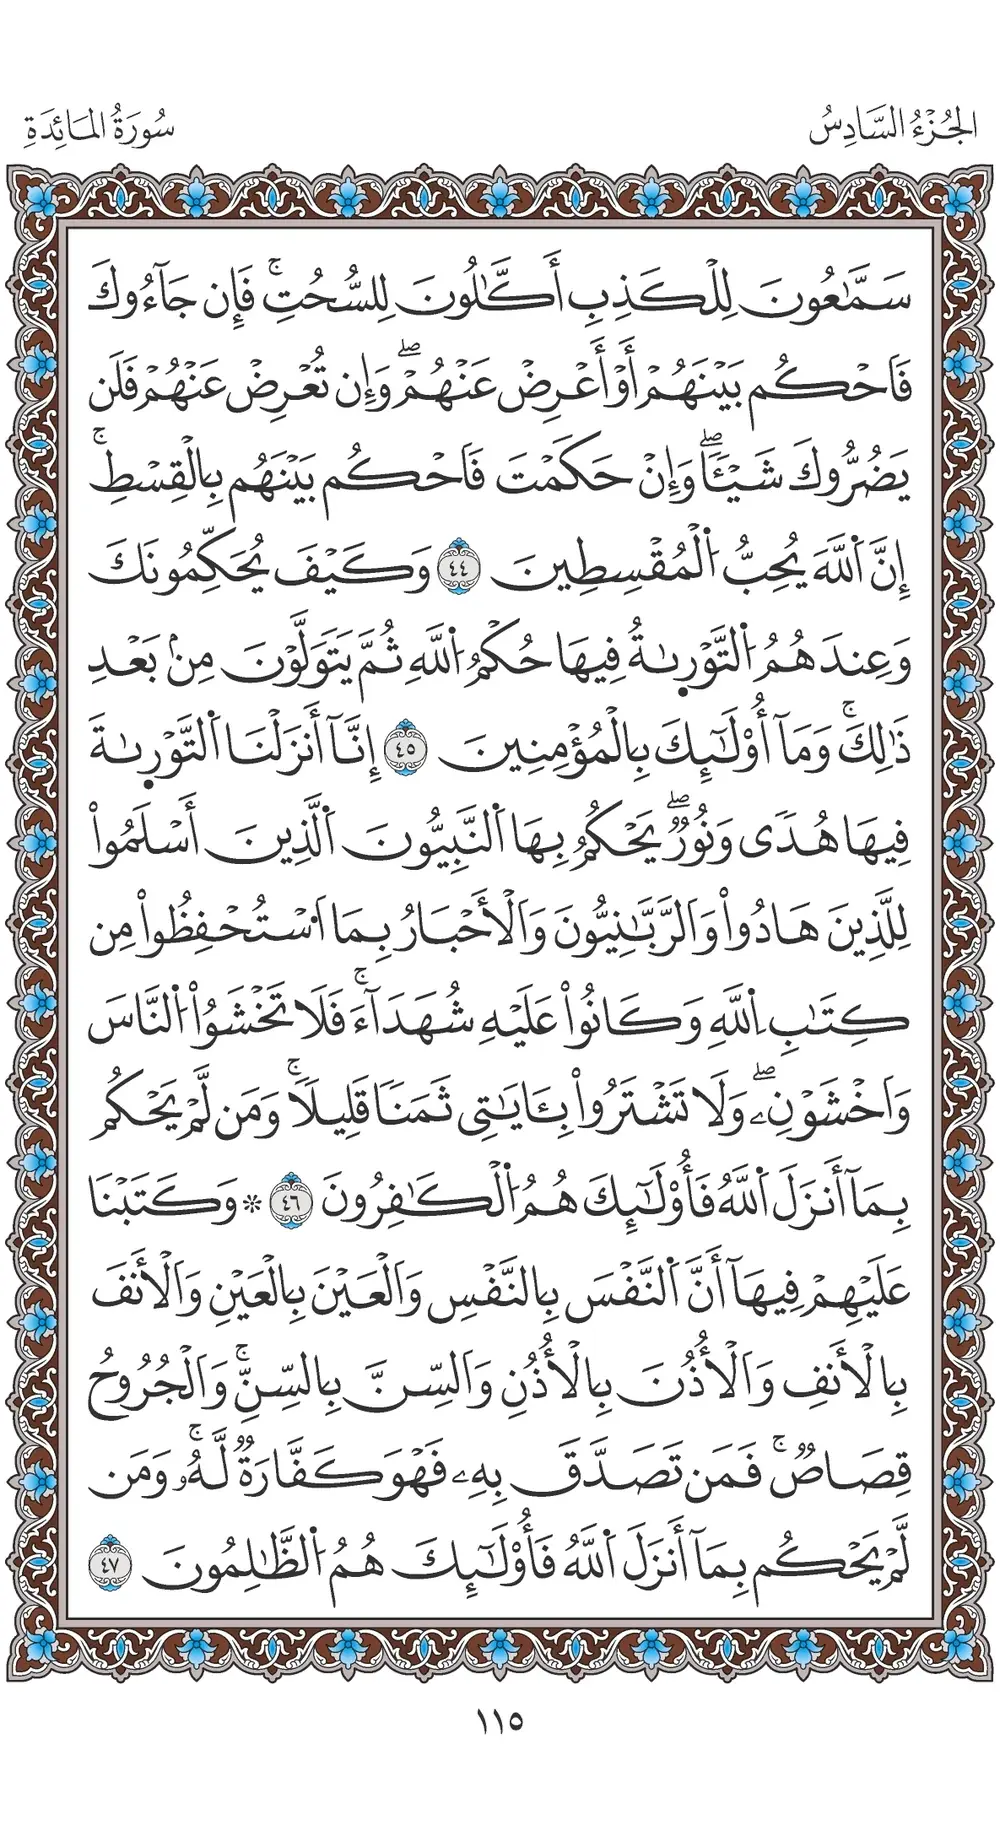 الجُزْءُ السَّادِسُ
سُورَةُ المَائِدَةِ
سَمَّٰعُونَ لِلْكَذِبِ أَكَّٰلُونَ لِلسُّحُتِۚ فَإِن جَآءُوكَ
فَاَحْكُم بَيْنَهُمْ أَوْ أَعْرِضْ عَنْهُمْۖ وَإِن تُعْرِضْ عَنْهُمْ فَلَن
يَضُرُّوكَ شَيْـًٔاۖ وَإِنْ حَكَمْتَ فَاَحْكُم بَيْنَهُم بِالْقِسْطِۚ
إِنَّ اَ۬للَّهَ يُحِبُّ اُ۬لْمُقْسِطِينَ ٤٤ وَكَيْفَ يُحَكِّمُونَكَ
وَعِندَهُمُ اُ۬لتَّوْر۪ىٰةُ فِيهَا حُكْمُ اُ۬للَّهِ ثُمَّ يَتَوَلَّوْنَ مِنۢ بَعْدِ
ذَٰلِكَۚ وَمَآ أُوْلَٰٓئِكَ بِالْمُؤْمِنِينَ ٤٥ إِنَّآ أَنزَلْنَا اَ۬لتَّوْر۪ىٰةَ
فِيهَا هُدٗى وَنُورٞۖ يَحْكُمُ بِهَا اَ۬لنَّبِيُّونَ اَ۬لَّذِينَ أَسْلَمُواْ
لِلَّذِينَ هَادُواْ وَالرَّبَّٰنِيُّونَ وَالْأَحْبَارُ بِمَا اَ۟سْتُحْفِظُواْ مِن
كِتَٰبِ اِ۬للَّهِ وَكَانُواْ عَلَيْهِ شُهَدَآءَۚ فَلَا تَخْشَوُاْ اُ۬لنَّاسَ
وَاَخْشَوْنِۦۖ وَلَا تَشْتَرُواْ بِـَٔايَٰتِى ثَمَنٗا قَلِيلٗاۚ وَمَن لَّمْ يَحْكُم
بِمَآ أَنزَلَ اَ۬للَّهُ فَأُوْلَٰٓئِكَ هُمُ اُ۬لْكَٰفِرُونَ ٤٦ * وَكَتَبْنَا
عَلَيْهِمْ فِيهَآ أَنَّ اَ۬لنَّفْسَ بِالنَّفْسِ وَالْعَيْنَ بِالْعَيْنِ وَالْأَنفَ
بِالْأَنفِ وَالْأُذُنَ بِالْأُذُنِ وَالسِّنَّ بِالسِّنِّۚ وَالْجُرُوحُ
قِصَاصٞۚ فَمَن تَصَدَّقَ بِهِۦ فَهْوَ كَفَّارَةٞ لَّهُۥۚ وَمَن
لَّمْ يَحْكُم بِمَآ أَنزَلَ اَ۬للَّهُ فَأُوْلَٰٓئِكَ هُمُ اُ۬لظَّٰلِمُونَ ٤٧
١١٥